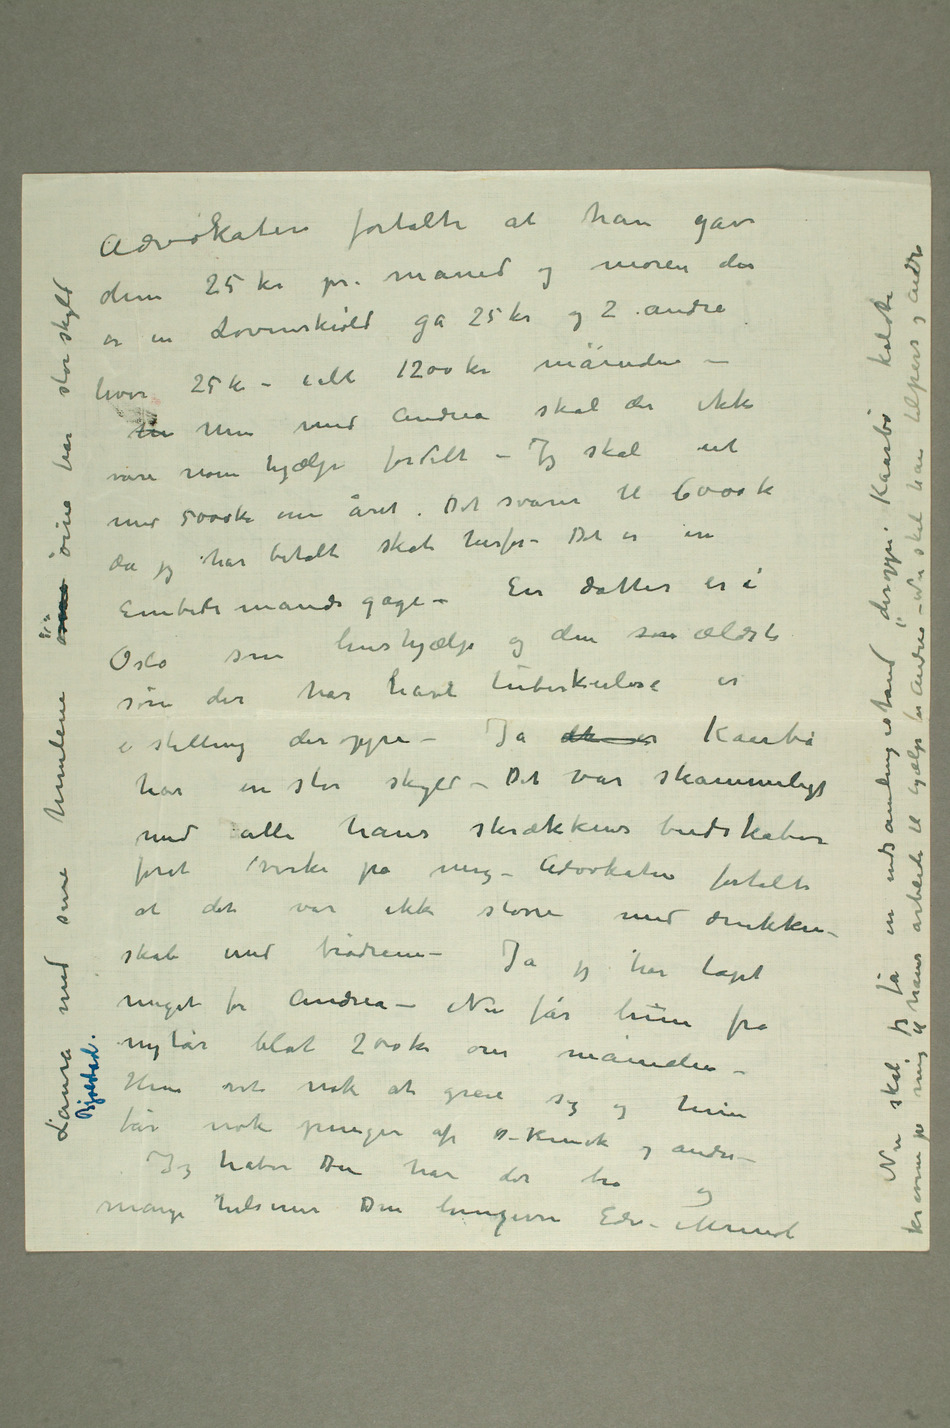 Advokaten fortalte at han gav
dem 25 kr pr. måned og moren der
er en Løvenskiold ga 25 kr og 2 andre
hver 25 kr – ialt 1200 kr måneden –
Men med Andrea skal der ikke
være noen hjælp fordelt – Jeg skal ut
med 5000 kr om året. Det svarer til 6000 k
da jeg har betalt skat herfor – Det er en
Embedsmands gage – En datter er i
Oslo som hushjælp og den søn ældste
søn der har havt tuberkulose er
i stilling deroppe – Ja Kaarbø
har en stor skyld – Det var skammeligt
med alle hans skrækkens budskaber
forat virke på meg – Advokaten fortalte
at det var ikke større med drukken-
skab med brødrene – Ja jeg har tapt
meget for Andrea – Nu får hun fra
nytår blot 200 kr om måneden –
Hun vet nok at greie seg og hun
får nok penger af og andre –
Jeg haber Du har det bra og
mange hilsener Din hengivne Edv. Munch
Laura med sine humlene øine har stor skyld
Bjølstad.
Nu skal jeg få en indsamling istand deroppe. Kaarbø kaldte
kravene på mig til hans arbeide til hjælp for Andrea – Nu skal han hjelpes og andre